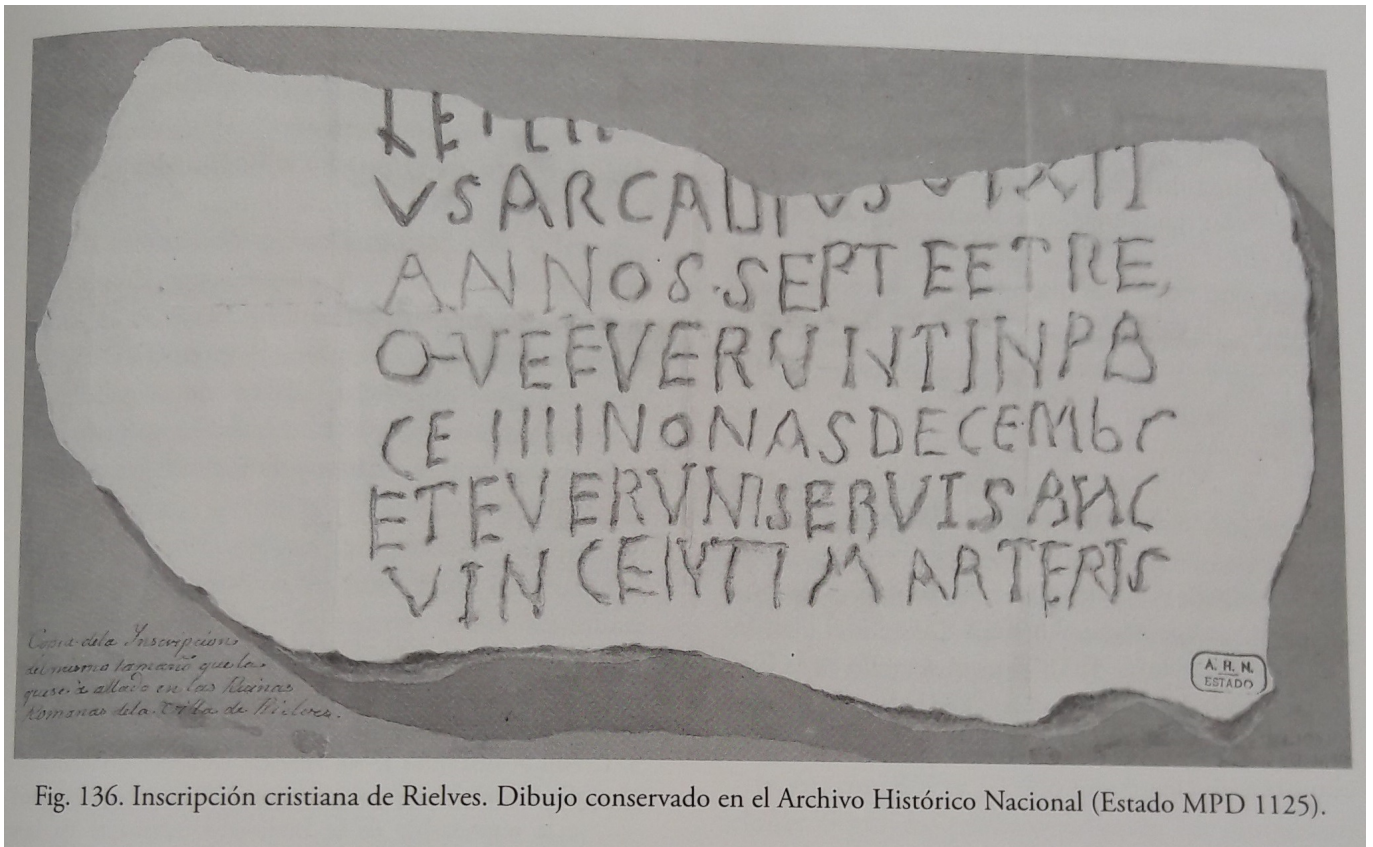 VSARCADIVS VIXIT
ANNOS·SEPT EETRE,
O-VEFVERVNTINPA
CE IIIINONASDECEMbr
ETEVERVNTSERVISANC
VINCENTTI MARTERIS
Copia dela Inscripcion
del mismo tamaño que la
que se à allado en las Ruinas
Romanas dela Villa de Rielves.
A. H. N.
ESTADO
Fig. 136. Inscripción cristiana de Rielves. Dibujo conservado en el Archivo Histórico Nacional (Estado MPD 1125).